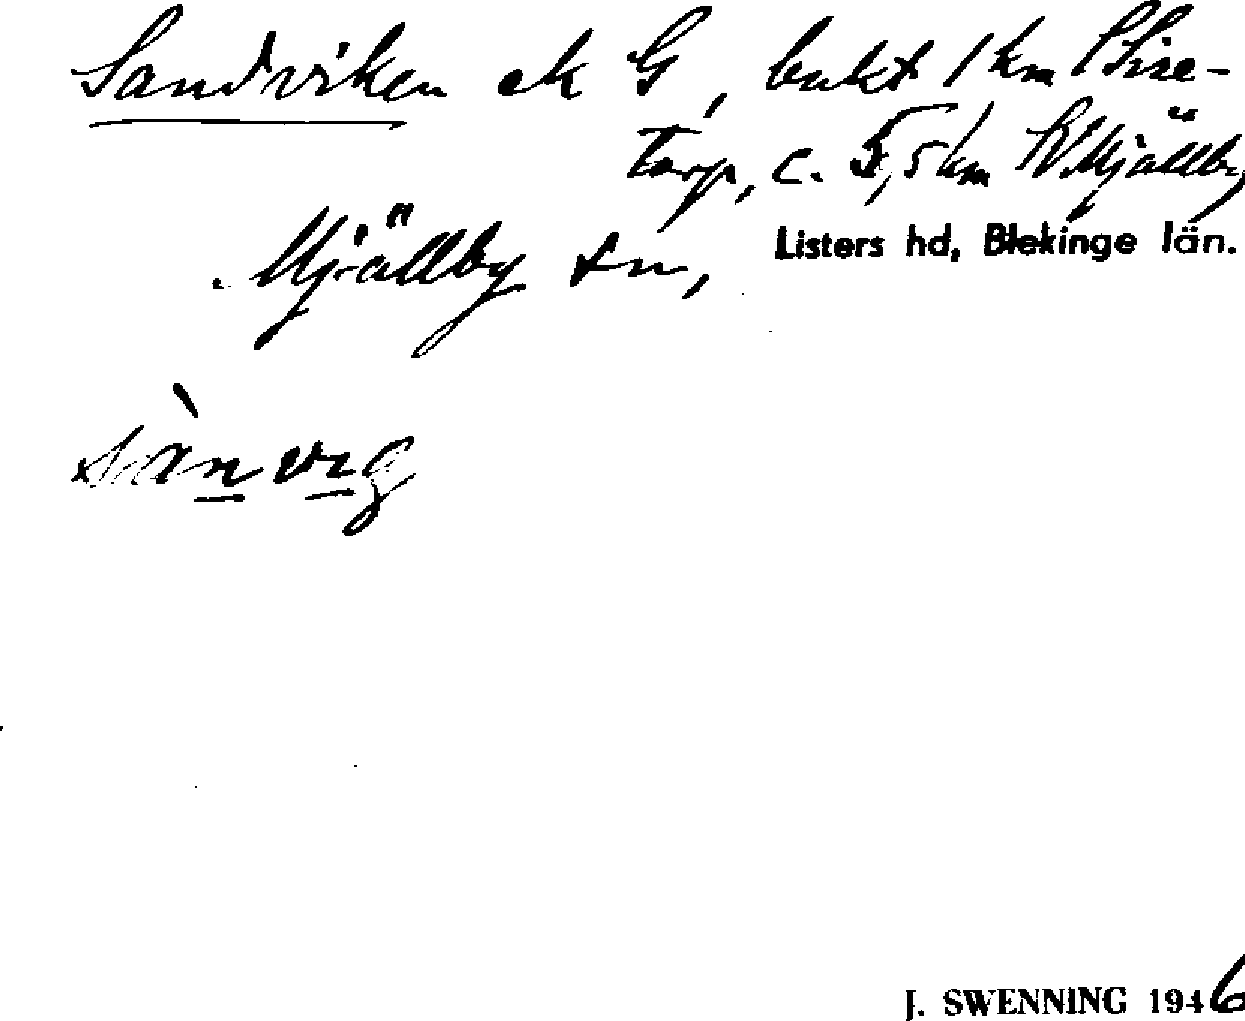 Sandviken ek G, bukt 1 km
torp, c. 5,5 km Mjällby,
Mjällby sn, Listers hd, Blekinge län.
sànvig
J. SWENNING 1946